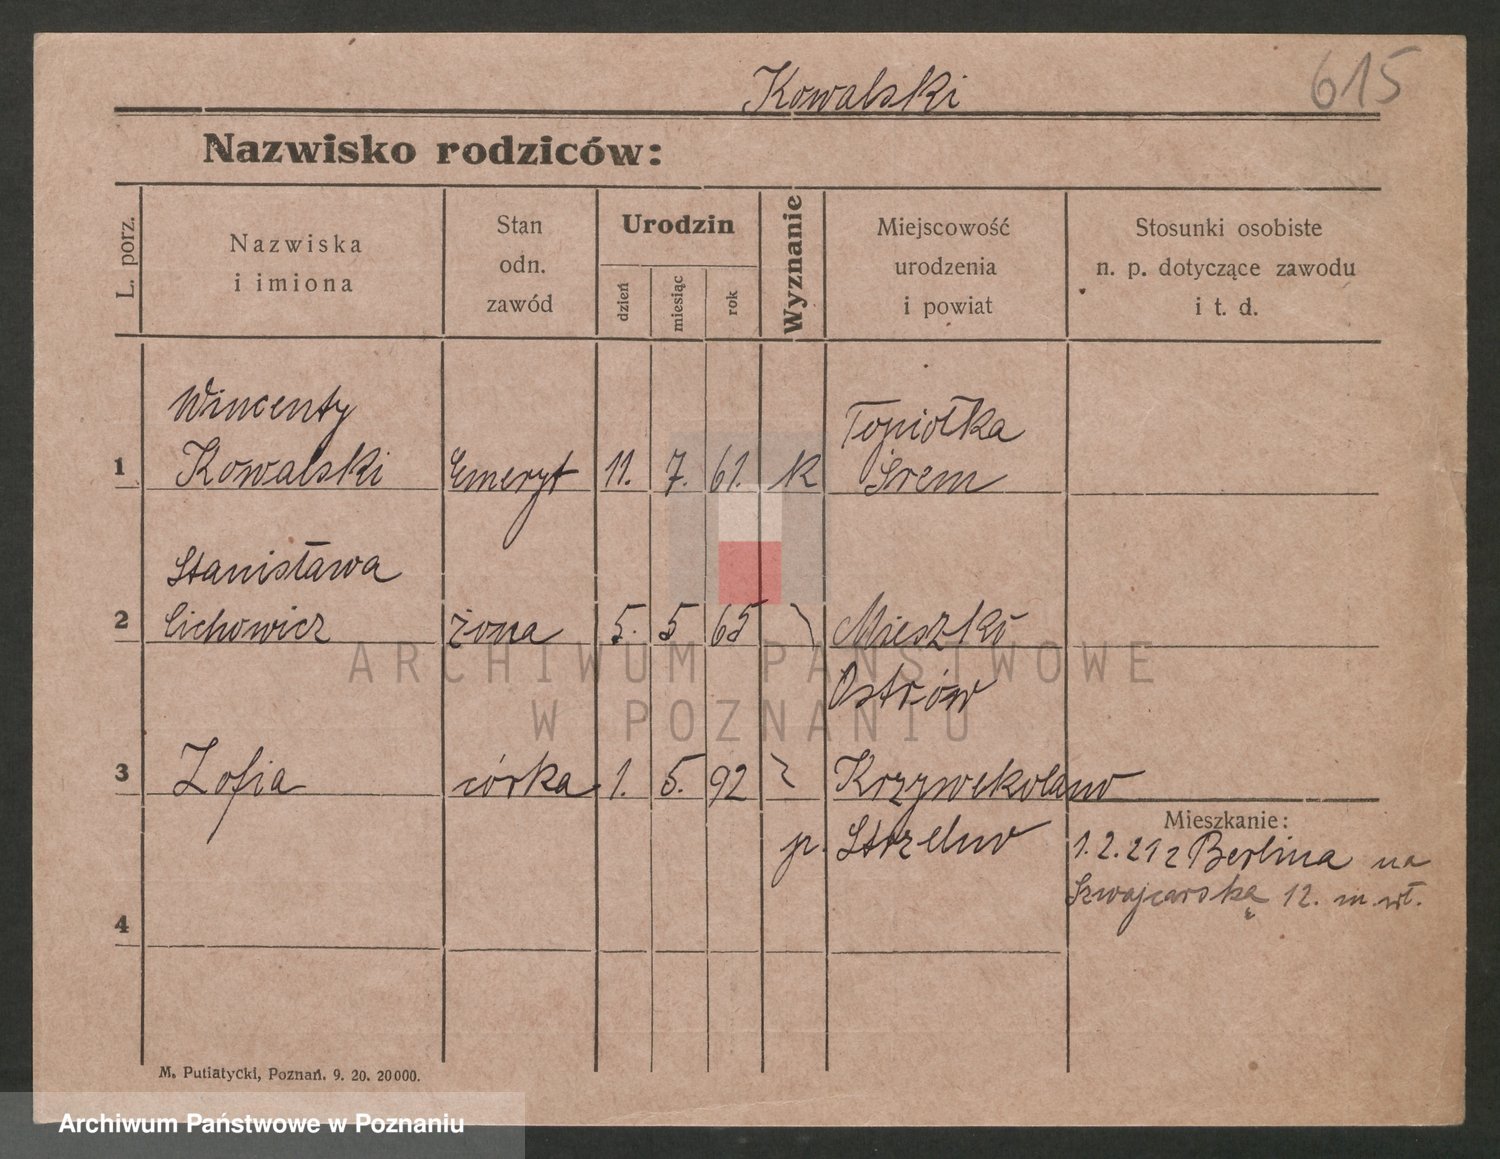 Kowalski
615
Nazwisko rodziców:
L. porz.
Nazwiska
i imiona
Stan
odn.
zawód
Urodzin
dzień
miesiąc
rok
Wyznanie
Miejscowość
urodzenia
i powiat
Stosunki osobiste
n. p. dotyczące zawodu
i t. d.
Wincenty
Topiołka
1 Kowalski Emeryt 11. 7. 61. k Śrem
Stanisława
2 Cichowicz żona 5. 5 65 Mieszkō
Ostrów
3 Zofia córka 1. 5. 92 Krzywekolano
Mieszkanie:
p. Strzelno
1.2.21 z Berlina na
Szwajcarską 12. m. wł.
4
M. Putiatycki, Poznań. 9. 20. 20000.
ARCHIWUM PAŃSTWOWE
W POZNANIU
Archiwum Państwowe w Poznaniu